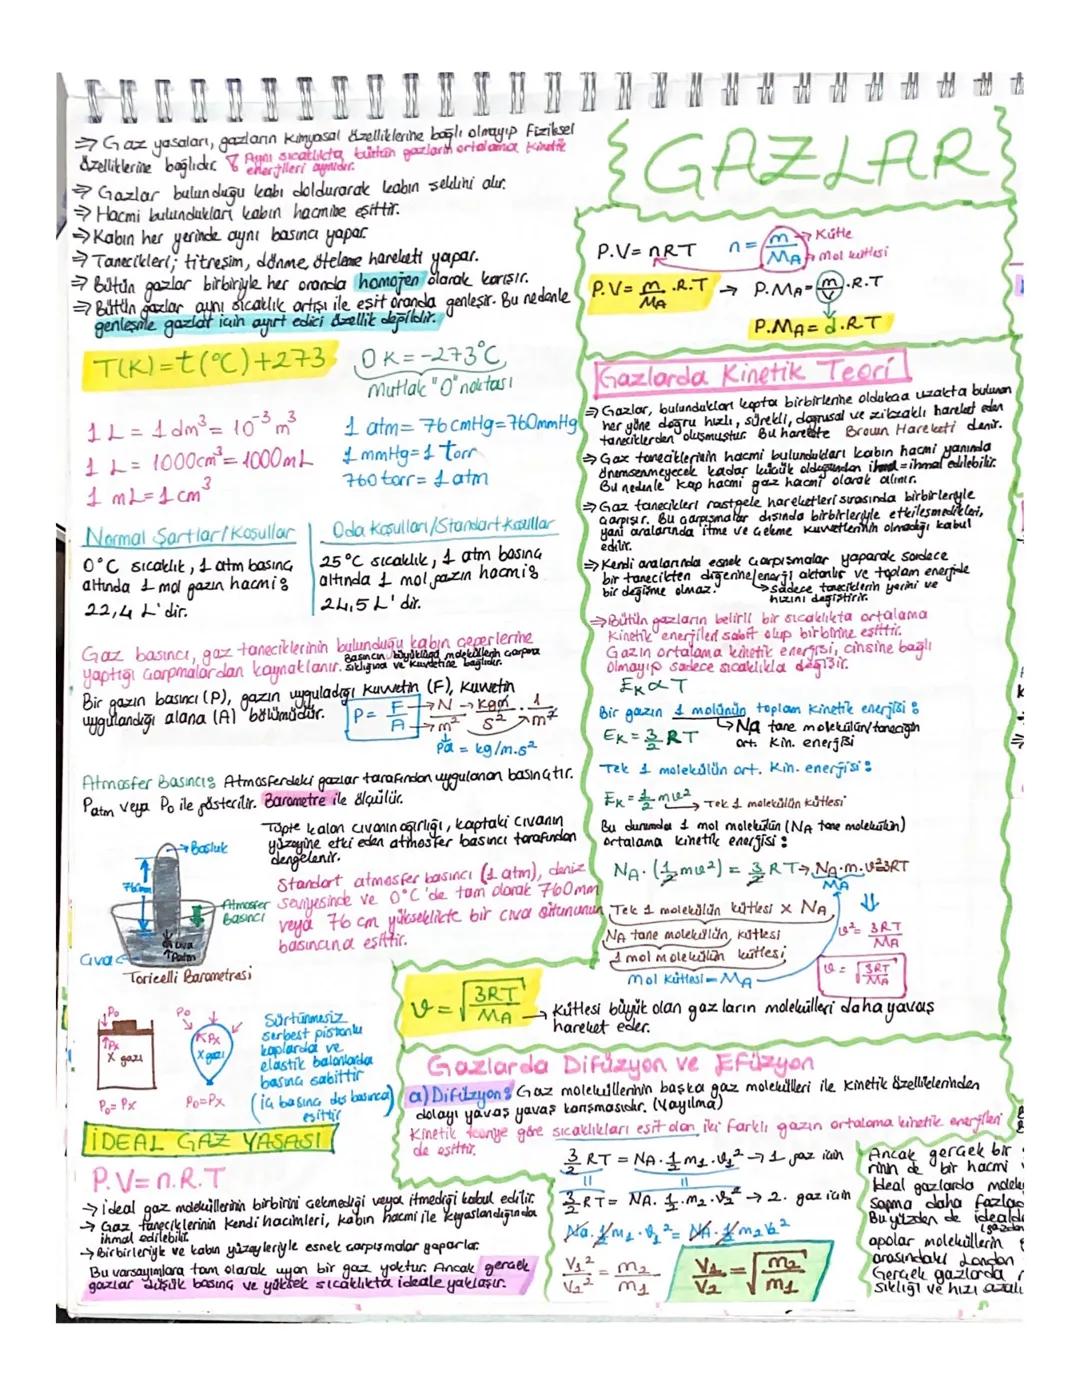 GAZLAR
⇒ Gaz yasaları, gazların kimyasal özelliklerine bağlı olmayıp fiziksel
özelliklerine bağlıdır. Aynı sıcaklıkta bütün gazların ortalama kinetik
enerjileri aynıdır.
⇒ Gazlar bulunduğu kabı doldurarak kabın şeklini alır.
⇒ Hacmi bulundukları kabın hacmine eşittir.
⇒ Kabın her yerinde aynı basıncı yapar.
⇒ Tanecikleri; titreşim, dönme, öteleme hareketi yapar.
⇒ Bütün gazlar birbiriyle her oranda homojen olarak karışır.
⇒ Bütün gazlar aynı sıcaklık artışı ile eşit oranda genleşir. Bu nedenle
genleşme gazlar için ayırt edici özellik değildir.
T(K)=t(°C)+273
0 K=-273°C
Mutlak "0" noktası
1 L = 1 dm³ = 10⁻³ m³
1 L = 1000cm³ = 1000mL
1 mL = 1 cm³
1 atm = 76 cmHg = 760mmHg
1 mmHg = 1 torr
760 torr = 1 atm
Normal Şartlar/Koşullar
0°C sıcaklık, 1 atm basınç
altında 1 mol gazın hacmi:
22,4 L'dir.
Oda Koşulları/Standart koşullar
25°C sıcaklık, 1 atm basınç
altında 1 mol gazın hacmi:
24,5 L' dir.
Gaz basıncı, gaz taneciklerinin bulunduğu kabın çeperlerine
yaptığı çarpmalardan kaynaklanır. Basıncın büyüklüğü moleküllerin çarpma
sıklığına ve kuvvetine bağlıdır.
Bir gazın basıncı (P), gazın uyguladığı kuvvetin (F), kuvvetin
uygulandığı alana (A) bölümüdür.
P = F/A → N/m² → kgm/s² . 1/m²
Pa = kg/m.s²
Atmosfer Basıncı: Atmosferdeki gazlar tarafından uygulanan basınçtır.
Patm veya Po ile gösterilir. Barometre ile ölçülür.
Tüpte kalan cıvanın ağırlığı, kaptaki cıvanın
yüzeyine etki eden atmosfer basıncı tarafından
dengelenir.
Standart atmosfer basıncı (1 atm), deniz
seviyesinde ve 0°C'de tam olarak 760 mm
veya 76 cm yükseklikte bir cıva sütununun
basıncına eşittir.
Boşluk
760mm
Atmosfer
Basıncı
cıva
Patm
Cıva
Toricelli Barometresi
Po
Px
X gazı
Po = Px
Po
Px
X gazı
Po=Px
Sürtünmesiz
serbest pistonlu
kaplarda ve
elastik balonlarda
basınç sabittir
(iç basınç dış basınca)
eşittir
İDEAL GAZ YASASI
P.V=n.R.T
→ ideal gaz moleküllerinin birbirini çekmediği veya itmediği kabul edilir.
→ Gaz taneciklerinin kendi hacimleri, kabın hacmi ile kıyaslandığında
ihmal edilebilir.
→ birbirleriyle ve kabın yüzeyleriyle esnek çarpışmalar yaparlar.
Bu varsayımlara tam olarak uyan bir gaz yoktur. Ancak gerçek
gazlar düşük basınç ve yüksek sıcaklıkta ideale yaklaşır.
P.V=nRT
n = m/MA
Kütle
mol kütlesi
P.V= m/MA .R.T → P.MA= m/V .R.T
P.MA= d.R.T
Gazlarda Kinetik Teori
⇒ Gazlar, bulundukları kapta birbirlerine oldukça uzakta bulunan
her yöne doğru hızlı, sürekli, doğrusal ve zikzaklı hareket eden
taneciklerden oluşmuştur. Bu harekete Brown Hareketi denir.
⇒ Gaz taneciklerinin hacmi bulundukları kabın hacmi yanında
önemsenmeyecek kadar küçük olduğundan ihmal edilebilir.
Bu nedenle kap hacmi gaz hacmi olarak alınır.
⇒ Gaz tanecikleri rastgele hareketleri sırasında birbirleriyle
çarpışır. Bu çarpışmalar dışında birbirleriyle etkileşmedikleri,
yani aralarında itme ve çekme kuvvetlerinin olmadığı kabul
edilir.
⇒ Kendi aralarında esnek çarpışmalar yaparak sadece
bir tanecikten diğerine enerji aktarılır ve toplam enerjide
bir değişme olmaz. → sadece taneciklerin yerini ve
hızını değiştirir.
⇒ Bütün gazların belirli bir sıcaklıkta ortalama
kinetik enerjileri sabit olup birbirine eşittir.
Gazın ortalama kinetik enerjisi, cinsine bağlı
olmayıp sadece sıcaklıkla değişir.
EK ∝ T
Bir gazın 1 molünün toplam kinetik enerjisi:
EK = 3/2 RT
NA tane molekülün/taneciğin
ort. kin. enerjisi
Tek 1 molekülün ort. kin. enerjisi:
EK = 1/2 mv² → Tek 1 molekülün kütlesi
Bu durumda 1 mol molekülün (NA tane molekülün)
ortalama kinetik enerjisi:
NA. (1/2 mv²) = 3/2 RT → NA.m.v²=3RT
MA
Tek 1 molekülün kütlesi x NA
NA tane molekülün kütlesi
1 mol molekülün kütlesi
mol kütlesi = MA
v² = 3RT/MA
v = √3RT/MA
v = √3RT/MA → Kütlesi büyük olan gazların molekülleri daha yavaş
hareket eder.
Gazlarda Difüzyon ve Efüzyon
a) Difüzyon: Gaz moleküllerinin başka gaz molekülleri ile kinetik özelliklerinden
dolayı yavaş yavaş karışmasıdır. (Yayılma)
Kinetik teoriye göre sıcaklıkları eşit olan iki farklı gazın ortalama kinetik enerjileri
de eşittir.
3/2 RT = NA. 1/2 m1. v1² → 1. gaz için
3/2 RT = NA. 1/2. m2. v2² → 2. gaz için
NA. 1/2 m1. v1² = NA. 1/2 m2 v2²
V1²/V2² = m2/m1
V1/V2 = √m2/m1
Ancak gerçek bir
nın de bir hacmi
İdeal gazlarda molek
sapma daha fazla
Bu yüzden de ideald
apolar moleküllerin
arasındaki London
Gerçek gazlarda
sıklığı ve hızı azalı